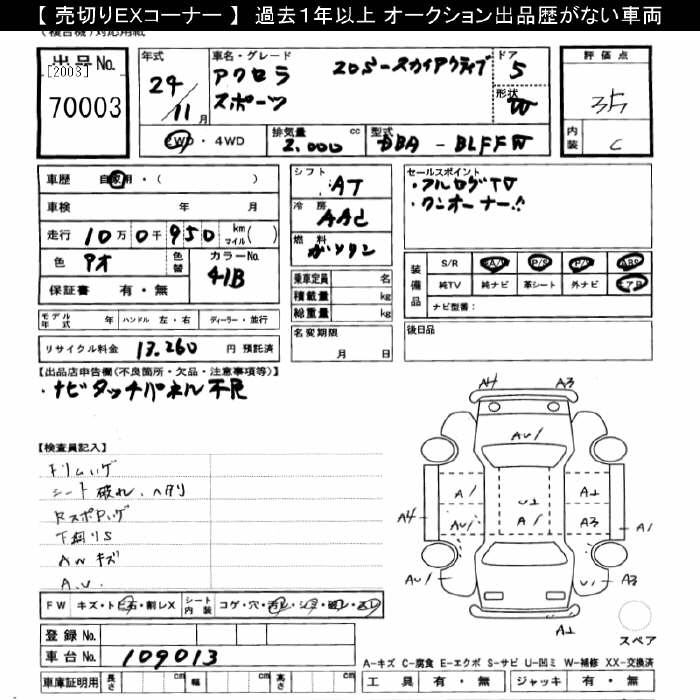 【 売切りEXコーナー 】 過去1年以上 オークション出品歴がない車両
(複合機)対応用紙
出品No.
[2003]
70003
年式
24
11月
車名・グレード
アクセラ
スポーツ
20S-スカイアクティブ
ドア
5
形状
W
評価点
3.5
内装
C
2WD・4WD
排気量
2.000 cc
型式
DBA - BLFFW
車歴 自家用・( )
車検 年 月
走行 10万0千950 km マイル( )
色 アオ
色替
カラーNo.
41B
保証書 有・無
シフト
AT
冷房
AAC
燃料
ガソリン
乗車定員 名
積載量 kg
総重量 kg
セールスポイント
・フルセグTV
・ワンオーナー!!
装備品
S/R SA/W P/S P/W ABS
純TV 純ナビ 革シート 外ナビ エアB
ナビ型番:
モデル年式 年 ハンドル 左・右 ディーラー・並行
名変期限
月 日
後日品
リサイクル料金 13.260 円 預託済
【出品店申告欄(不良箇所・欠品・注意事項等)】
・ナビタッチパネル不良
【検査員記入】
シート破れ、ヘタリ
下廻りS
AWキズ
A.U.
A4 A3
AU1
A1 U2 A2
A4 AU1 A1 A3 A1
AU1 U1 A3
A2
スペア
FW キズ・トビ石・割レX シート内装 コゲ・穴・汚レ・シミ・破レ・スレ
登録No.
車台No. 109013
車庫証明用 長さ cm 幅 cm 高さ cm
A-キズ C-腐食 E-エクボ S-サビ U-凹ミ W-補修 XX-交換済
工具 有・無 ジャッキ 有・無